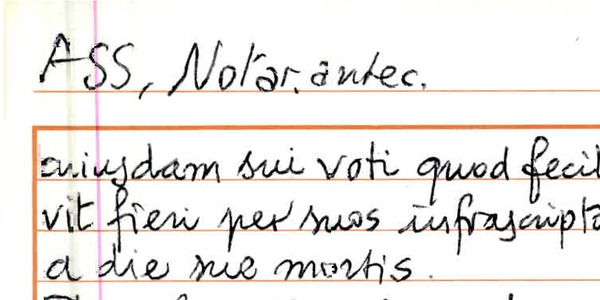 ASS, Notar. antec.
cuiusdam sui voti quod fecit
vit fieri per suos infrascripto
a die sue mortis.